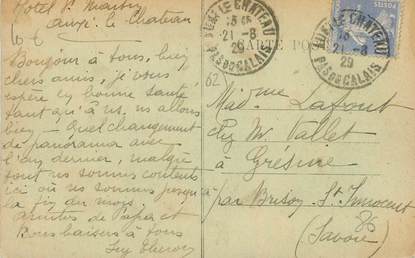 Hotel St Martin
Auxi le Chateau
Bonjour à tous, bien
chers amis, je vous
espère en bonne santé
tant qu'à ns, ns allons
bien — Quel changement
de panorama avec
l'an dernier, malgré
tout ns sommes contents
ici où ns sommes jusqu'à
la fin du mois.
Amitiés de Papa et
Bons baisers à tous
CARTE POS
LE CHATEAU
21-8
29
PAS DE CALAIS
LE CHATEAU
21-8
29
PAS DE CALAIS
POSTES
62
Madme Lafont
chez Mr Vallet
à Grésine
par Brison-St Innocent
(Savoie)